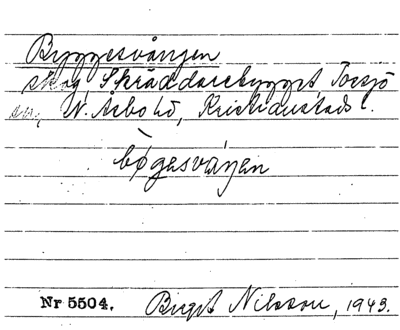 Byggesvången
skog, Skräddarebygget, Torsjö
sn., N. Asbo hd, Kristianstads l.
bøgesvaŋen
Nr 5504. Birgit Nilsson, 1943.